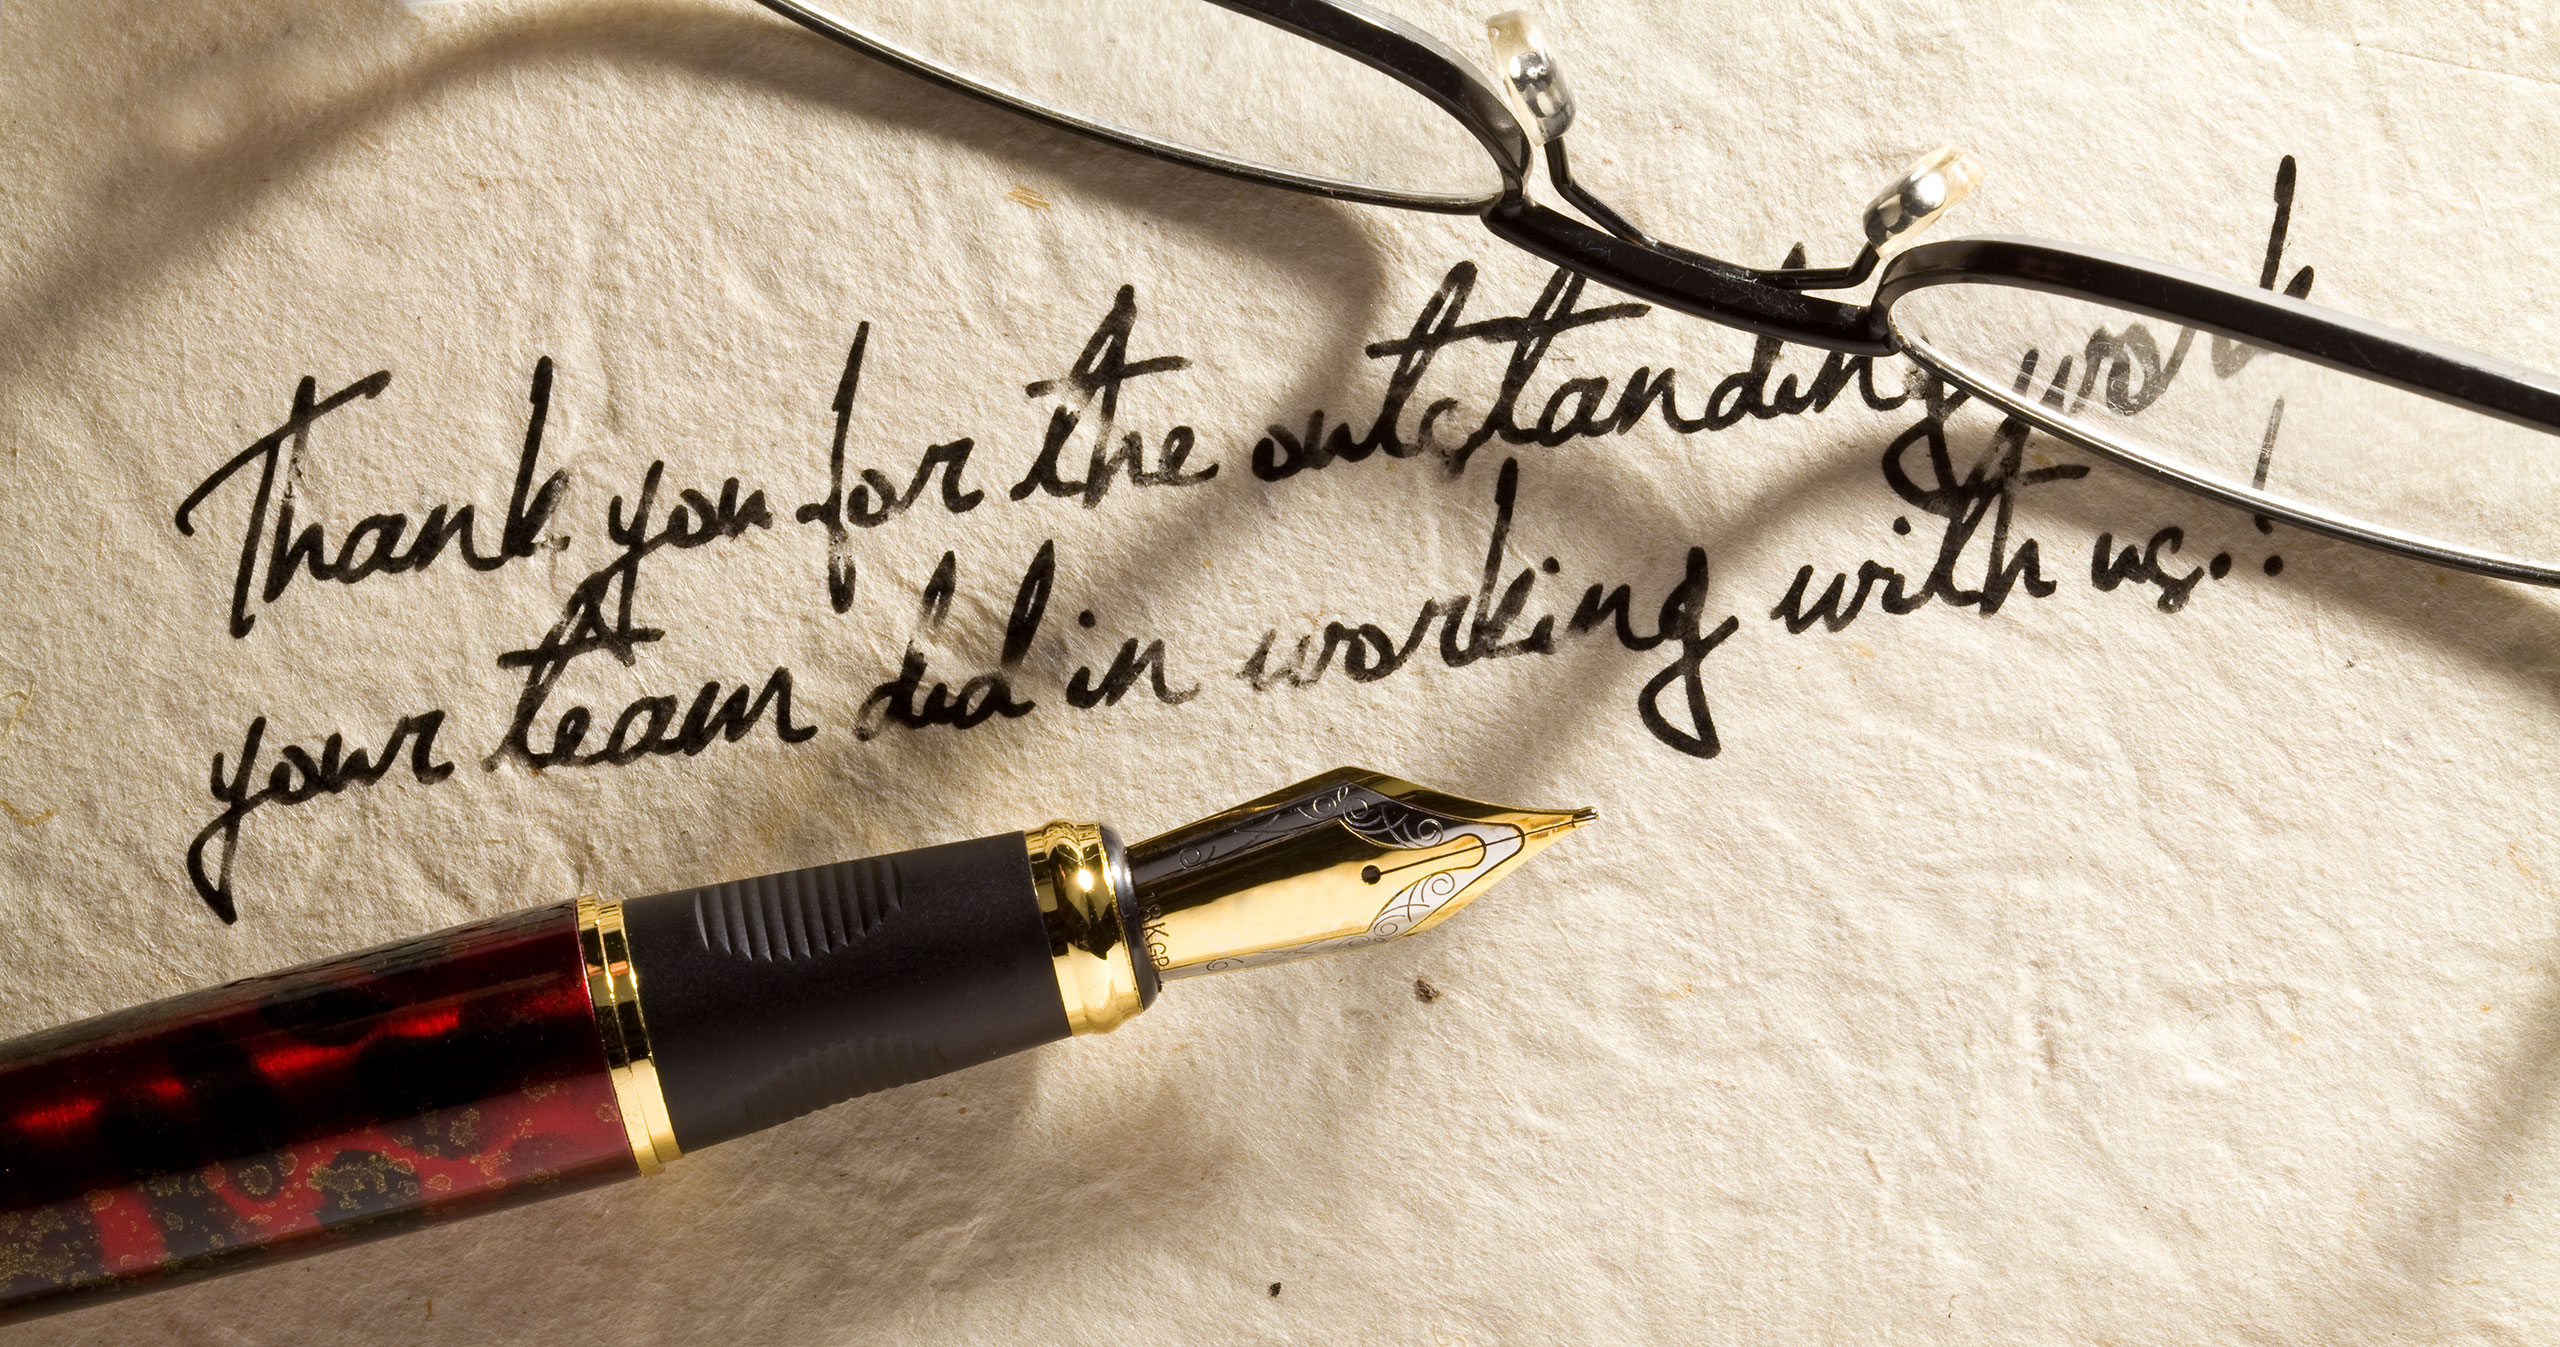 Thank you for the outstanding work
your team did in working with us.!
18KGP